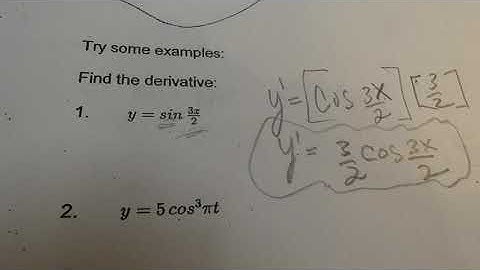 Try some examples:
Find the derivative:
1. y = sin 3x/2
y' = [cos 3x/2] [3/2]
y' = 3/2 cos 3x/2
2. y = 5 cos³πt